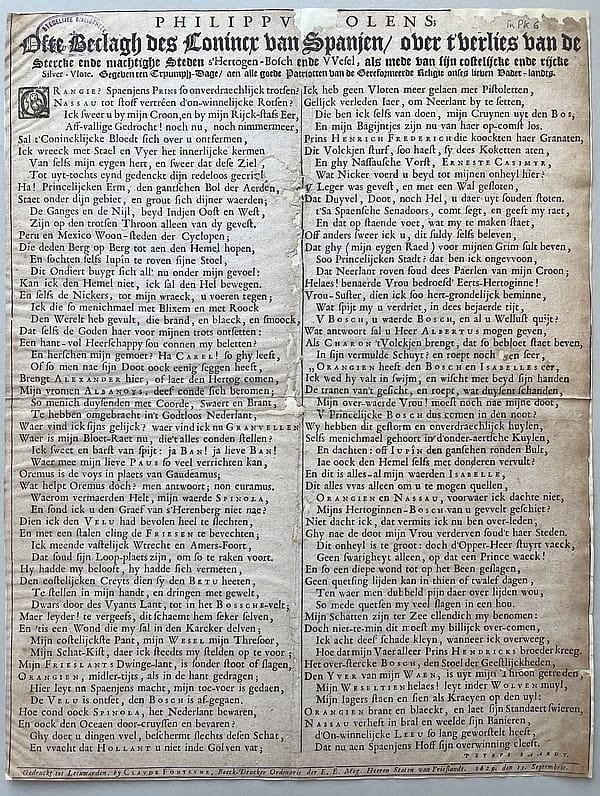 PHILIPPV OLENS;
Ofte Beclagh des Conincx van Spanjen/ over t'verlies van de
Stercke ende machtighe Steden s'Hertogen-Bosch ende VVesel, als mede van sijn costelijcke ende rijcke
Silver-Vlote. Gegeven een Tryumph-Dage/ aen alle goede Patriotten van de Gereformeerde Religie onses lieven Vader-landts.
ORANGIE? Spaenjens PRINS so onverdraechlijck trotsen?
NASSAU tot stoff vertrêen d'on-winnelijcke Rotsen?
Ick sweer u by mijn Croon, en by mijn Rijck-stafs Eer,
Aff-vallige Gedrocht! noch nu, noch nimmermeer,
Sal t'Conincklijcke Bloedt sich over u ontfermen,
Ick wreeck met Stael en Vyer het innerlijcke kermen
Van selfs mijn eygen hert, en sweer dat dese Ziel,
Tot uyt-tochts eynd gedenckt dijn redeloos gecriel!
Ha! Princelijcken Erm, den gantschen Bol der Aerden,
Staet onder dijn gebiet, en grout sich dijner waerden;
De Ganges en de Nijl, beyd Indjen Oost en West,
Zijn op den trotsen Throon alleen van dy gevest.
Peru en Mexico Woon-steden der Cyclopen;
Die deden Berg op Berg tot aen den Hemel hopen,
En sochten selfs Iupin te roven sijne Stoel,
Dit Ondiert buygt sich all' nu onder mijn gevoel:
Kan ick den Hemel niet, ick sal den Hel bewegen.
En selfs de Nickers, tot mijn wraeck, u voeren tegen;
Ick die so menichmael met Blixem en met Roock
Den Werelt heb gevult, die brand, en blaeck, en smoock,
Dat selfs de Goden haer voor mijnen trots ontsetten:
Een hant-vol Heerschappy sou connen my beletten?
En herschen mijn gemoet? Ha CAREL! so ghy leeft,
Of so men nae sijn Doot oock eenig seggen heeft,
Brengt ALEXANDER hier, of laet den Hertog comen,
Mijn vromen ALBANOYS, deef conde sich beromen;
So menich duylenden met Coorde, Swaert en Brant,
Te hebben omgebracht in't Godtloos Nederlant,
Waer vind ick sijns gelijck? waer vind ick nu GRANVELLEN
Waer is mijn Bloet-Raet nu, die't alles conden stellen?
Ick sweet en barst van spijt: ja BAN! ja lieve BAN!
Waer mee mijn lieve PAUS so veel verrichten kan,
Oremus is de voys in plaets van Gaudeamus;
Wat helpt Oremus doch? men antwoort; non curamus.
Waerom vermaerden Helt, mijn waerde SPINOLA,
En sond ick u den Graef van s'Herenberg niet nae?
Dien ick den VELU had bevolen heel te slechten,
En met een stalen cling de FRIESEN te bevechten;
Ick meende vastelijck Wtrecht en Amers-Foort,
Dat soud sijn Loop-plaets zijn, om so te raken voort.
Hy hadde my belooft, hy hadde sich vermeten,
Den costelijcken Creyts dien sy den BETU heeten,
Te stellen in mijn handt, en dringen met gewelt,
Dwars door des Vyants Lant, tot in het BOSSCHE-velt;
Maer leyder! te vergeefs, dit schaemt hem seker selven,
En 'tis een Wond die my sal in den Karcker delven;
Mijn costelijckste Pant, mijn WESEL mijn Thresoor,
Mijn Schat-Kist, daer ick steedts my stelden op te voor;
Mijn FRIESLANTS Dwinge-lant, is sonder stoot of slagen,
ORANGIEN, midler-tijts, als in de hant gedragen;
Hier leyt nu Spaenjens macht, mijn toe-voer is gedaen,
De VELU is onset, den BOSCH is af-gegaen.
Hoe cond oock SPINOLA, het Nederlant bewaren,
En oock den Oceaen door-cruyssen en bevaren?
Ghy doet u dingen wel, beschermt slechts desen Schat,
En vvacht dat HOLLANT u niet inde Golven vat;
Ick heb geen Vloten meer gelaen met Pistoletten,
Gelijck verleden Iaer, om Neerlant by te setten,
Die ben ick selfs van doen, mijn Cruynen uyt den BOS,
En mijn Bagijntjes zijn nu van haer op-comst los.
Prins HENRICH FREDERICH die koockten haer Granaten,
Dit Volckjen sturf, soo haest, sy dees Koketten aten,
En ghy Nassausche Vorst, ERNESTE CASIMYR,
Wat Nicker voerd u beyd tot mijnen onheyl hier?
V Leger was gevest, en met een Wal gesloten,
Dat Duyvel, Doot, noch Hel, u daer-uyt souden stoten.
t'Sa Spaensche Senadoors, comt segt, en geeft my raet,
En dat op staende voet, wat my te maken staet,
Off anders sweer ick u, dit suldy selfs beleven,
Dat ghy (mijn eygen Raed) voor mijnen Grim sult beven,
Soo Princelijcken Stadt? dat ben ick ongevvoon,
Dat Neerlant roven soud dees Paerlen van mijn Croon;
Helaes! benaerde Vrou bedroefd' Eerts-Hertoginne!
Vrou-Suster, dien ick soo hert-grondelijck beminne,
Wat spijt my u verdriet, in dees bejaerde tijt,
V BOSCH, u waerde BOSCH, en al u Wellust quijt?
Wat antwoort sal u Heer ALBERTUS mogen geven,
Als CHARON t'Volckjen brengt, dat so bebloet staet beven,
In sijn vermulde Schuyt? en roept noch seer,
„ORANGIEN heeft den BOSCH en ISABELLES eer,
Ick wed hy valt in swijm, en wischt met beyd sijn handen
De tranen van't gesicht, en roept, wat duylen schanden,
Mijn over-waerde Vrou! moest noch nae mijne doot,
V Princelijcke BOSCH dus comen in den noot?
Wy hebben dit gestorm en onverdraechlijck huylen,
Selfs menichmael gehoort in'd'onder-aertsche Kuylen,
En dachten: off IUPIN den ganschen ronden Bult,
Iae oock den Hemel selfs met donderen vervult?
En dit is alles-al mijn waerden ISABELLE,
Dit alles vvas alleen om u te mogen quellen,
ORANGIEN en NASSAU, voorwaer ick dachte niet,
Mijns Hertoginnen-BOSCH van u gevvelt geschiet?
Niet dacht ick, dat vermits ick nu ben over-leden,
Ghy nae de doot mijn Vrou verderven soud't haer Steden.
Dit onheyl is te groot: doch d'Opper-Heer stuyrt vaeck,
Geen swarigheyt alleen, op dat een Prince waeck!
En so een diepe wond tot op het Been geslagen,
Geen quetsing lijden kan in thien of twalef dagen,
Ten waer men dubbeld pijn daer over lijden wou,
So mede quetsen my veel slagen in een hou.
Mijn Schatten zijn ter Zee ellendich my benomen:
Doch niet-te-min dit moest my billijck over-comen,
Ick acht deef schade kleyn, wanneer ick overweeg,
Hoe dat mijn Vaer alleer Prins HENDRICKS broeder kreeg.
Het over-stercke BOSCH, den Stoel der Geestlijckheden,
Den YVER van mijn WAEN, is uyt mijn Throon getreden,
Mijn WESELTIEN helaes! leyt inder WOLVEN muyl,
Mijn lagers staen en sien als Kraeyen op den uyl:
ORANGIEN brant en blaeckt, en laet sijn Standaert swieren,
NASSAU verheft in bral en weelde sijn Banieren,
d'On-winnelijcke LEEU so lang geworstelt heeft;
Dat nu aen Spaenjens Hoff sijn overwinning cleeft.
TETRVS BAARDT.
Gedruckt tot Leeuwarden, by CLAVDE FONTEYNE, Boeck-Drucker Ordinaris der E. E. Mog. Heeren Staten van Frieslandt. 1629. den 15. Septembris.